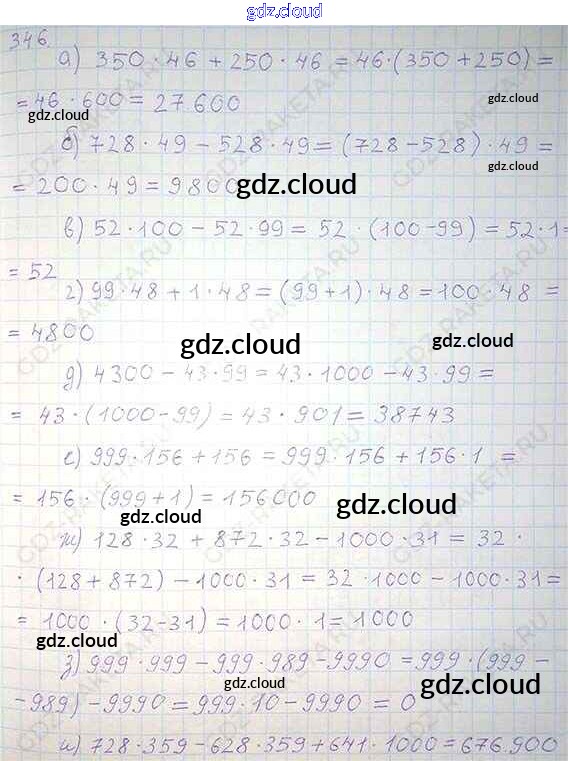 gdz.cloud
346.
а) 350 · 46 + 250 · 46 = 46 · (350 + 250) =
= 46 · 600 = 27 600
gdz.cloud
gdz.cloud
б) 728 · 49 − 528 · 49 = (728 − 528) · 49 =
= 200 · 49 = 9800
gdz.cloud
в) 52 · 100 − 52 · 99 = 52 · (100 − 99) = 52 · 1 =
= 52
г) 99 · 48 + 1 · 48 = (99 + 1) · 48 = 100 · 48 =
= 4800
gdz.cloud
gdz.cloud
д) 4300 − 43 · 99 = 43 · 1000 − 43 · 99 =
= 43 · (1000 − 99) = 43 · 901 = 38743
е) 999 · 156 + 156 = 999 · 156 + 156 · 1 =
= 156 · (999 + 1) = 156 000
gdz.cloud
gdz.cloud
ж) 128 · 32 + 872 · 32 − 1000 · 31 = 32 ·
· (128 + 872) − 1000 · 31 = 32 · 1000 − 1000 · 31 =
= 1000 · (32 − 31) = 1000 · 1 = 1000
gdz.cloud
gdz.cloud
з) 999 · 999 − 999 · 989 − 9990 = 999 · (999 −
− 989) − 9990 = 999 · 10 − 9990 = 0
gdz.cloud
gdz.cloud
и) 728 · 359 − 628 · 359 + 641 · 1000 = 676.900
GDZ-RAKETA.RU